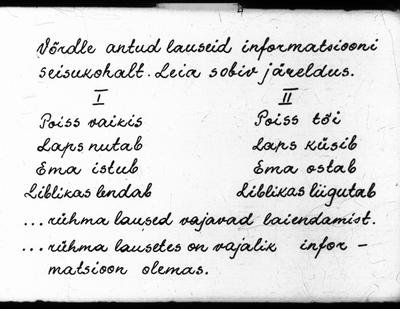 Võrdle antud lauseid informatsiooni
seisukohalt. Leia sobiv järeldus.
I II
Poiss vaikis Poiss tõi
Laps nutab Laps küsib
Ema istub Ema ostab
Liblikas lendab Liblikas liigutab
...rühma laused vajavad laiendamist.
...rühma lausetes on vajalik infor-
matsioon olemas.